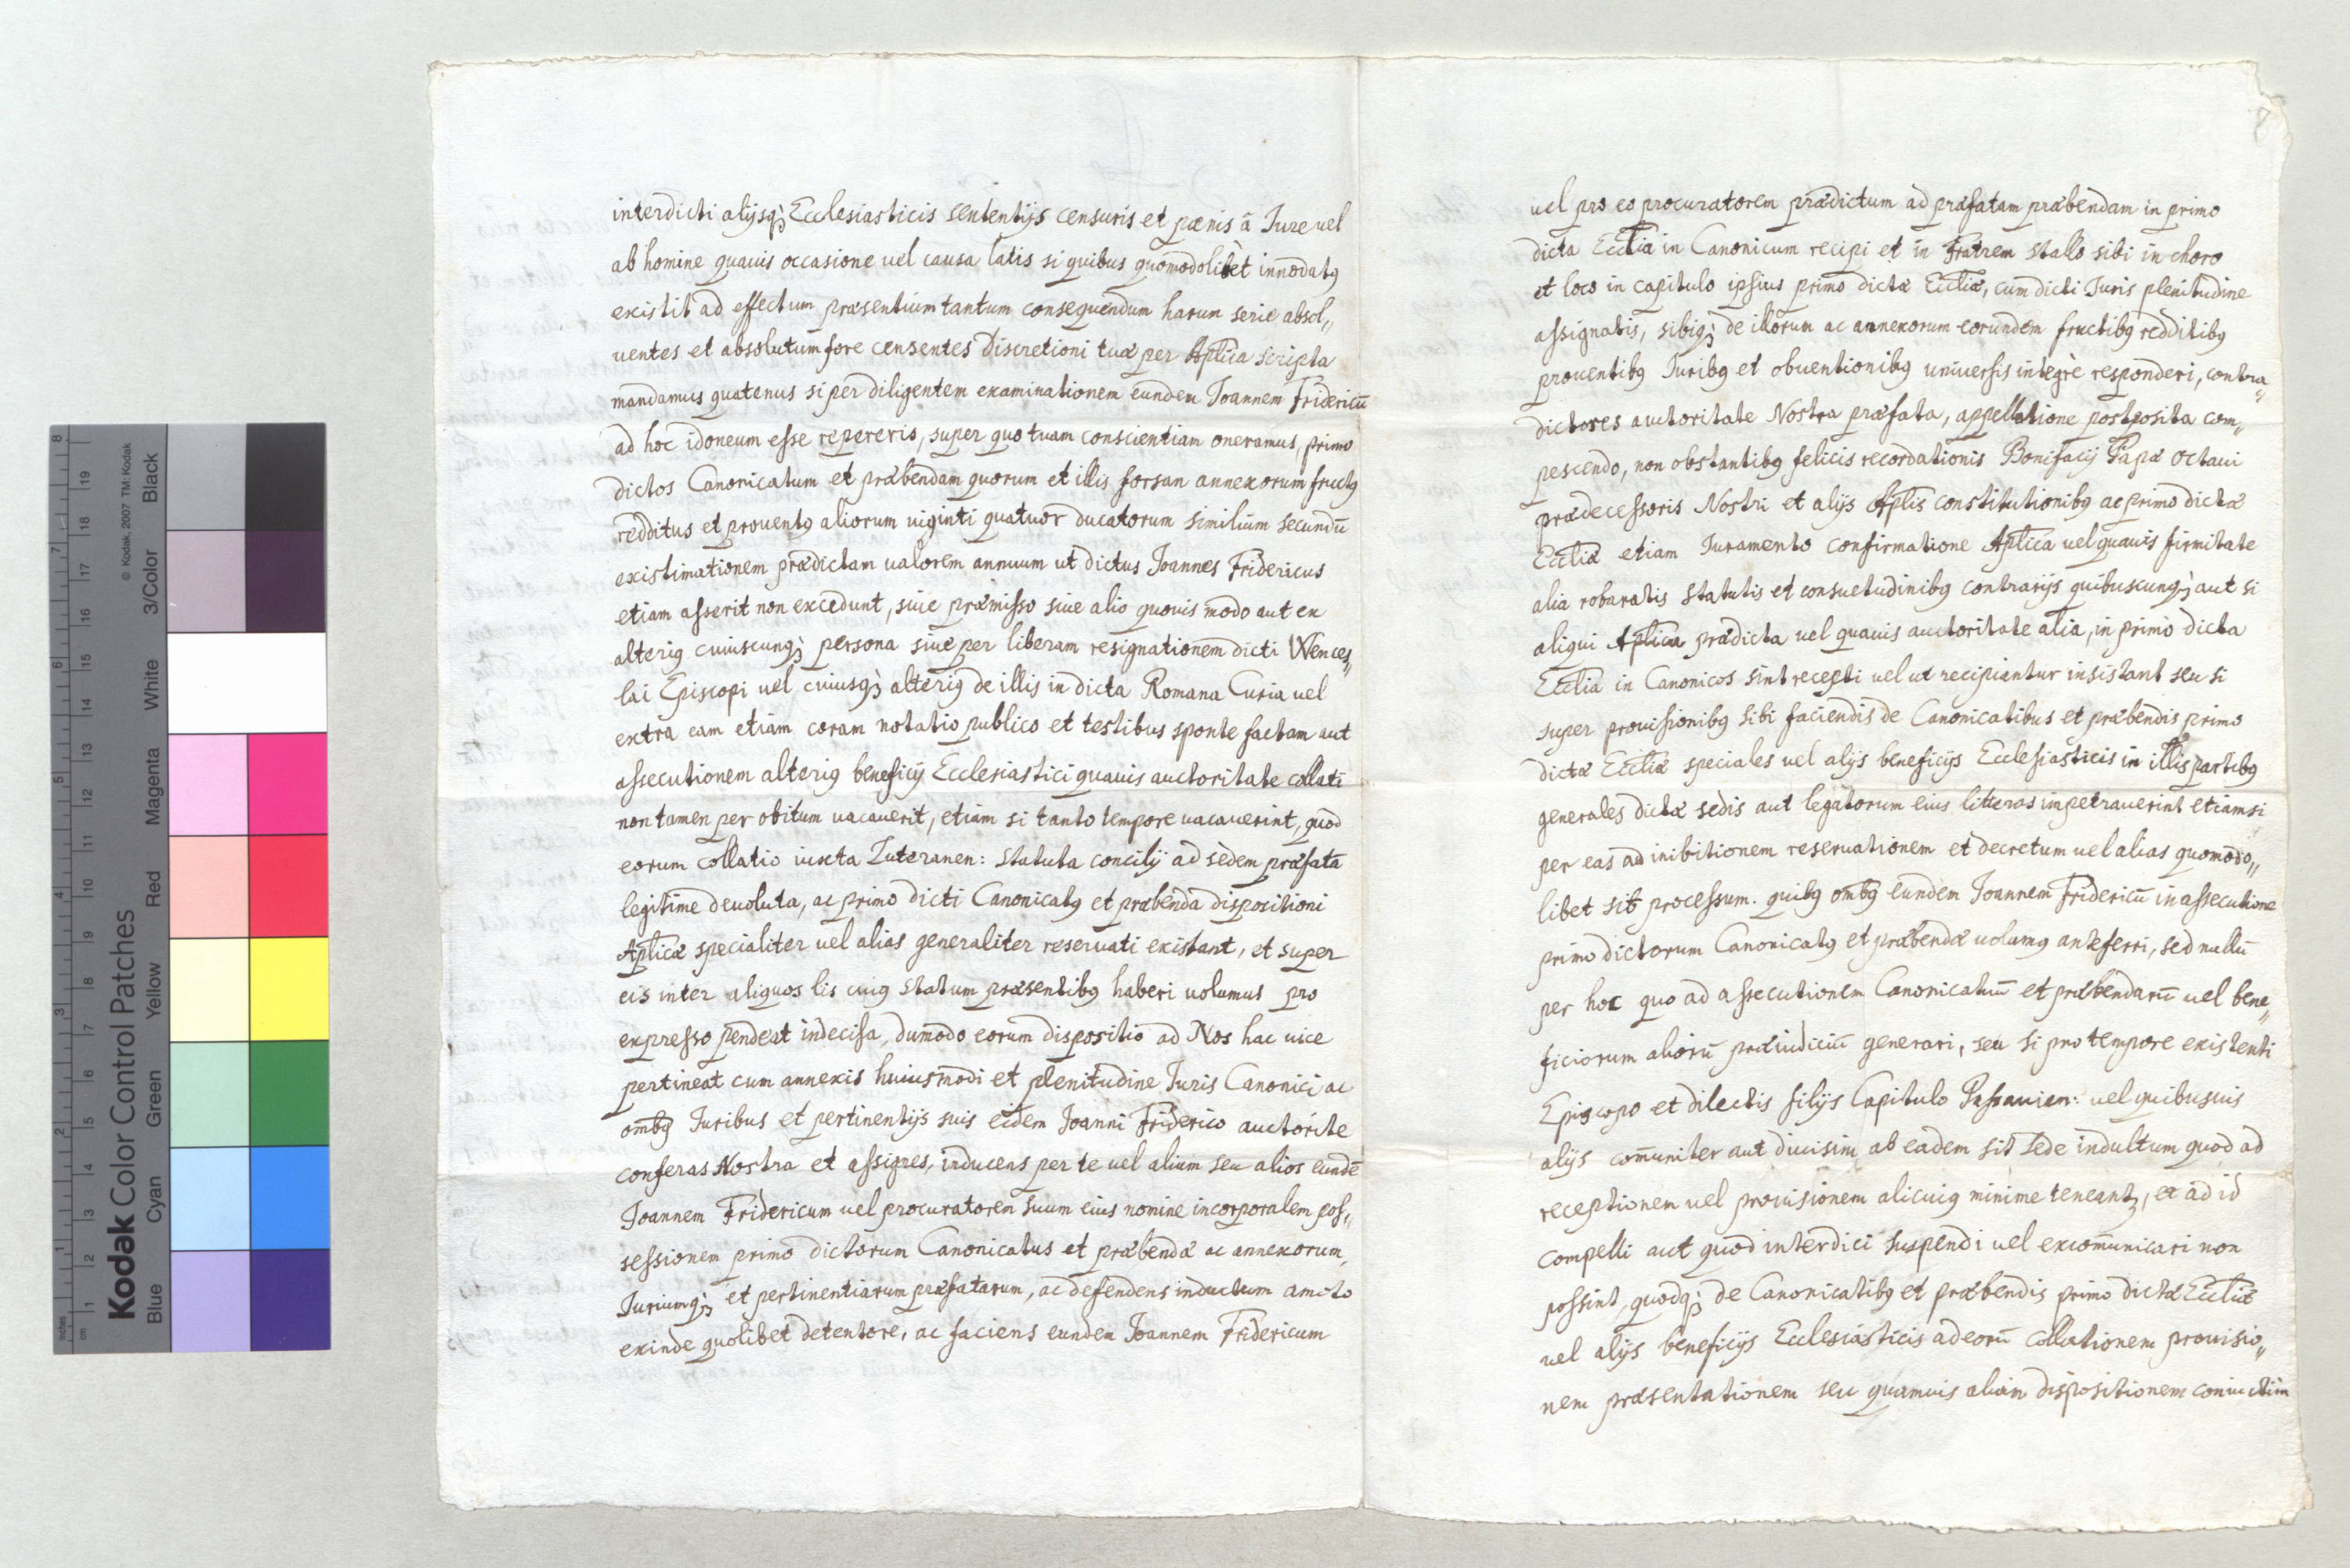 interdicti alijsq; Ecclesiasticis sententijs censuris et pœnis â Iure uel
ab homine quauis occasione uel causa latis si quibus quomodolibet innodatꝰ
existit ad effectum præsentium tantum consequendum harum serie absol„
uentes et absolutum fore censentes Discretioni tuæ per Aptĩca scripta
mandamus quatenus si per diligentem examinationem eundem Ioannem Fridericū
ad hoc idoneum esse repereris, super quo tuam conscientiam oneramus, primo
dictos Canonicatum et præbendam quorum et illis forsan annexorum fructꝰ
redditus et prouentꝰ aliorum uiginti quatuor ducatorum similium secundū
existimationem prædictam ualorem annuum ut dictus Ioannes Fridericus
etiam asserit non excedunt, siue præmisso siue alio quouis modo aut ex
alteriꝰ cuiuscunq; persona siue per liberam resignationem dicti Wences„
lai Episcopi uel cuiusq; alteriꝰ de illis in dicta Romana Curia uel
extra eam etiam coram notatio publico et testibus sponte factam aut
assecutionem alteriꝰ beneficij Ecclesiastici quauis auctoritate collati
non tamen per obitum uacauerit, etiam si tanto tempore uacauerint, quod
eorum collatio iuxta Luteranen: statuta concilij ad sedem præfatã
legitime deuoluta, ac primo dicti Canonicatꝰ et præbenda dispositioni
Aptĩcæ specialiter uel alias generaliter reseruati existant, et super
eis inter aliquos lis cuiꝰ statum præsentibꝰ haberi uolumus pro
expresso pendeat indecisa, dumodo eorum dispositio ad Nos hac uice
pertineat cum annexis huiusmodi et plenitudine Iuris Canonici ac
om̃bꝰ Iuribus et pertinentijs suis eidem Ioanni Friderico auctorite
conferas Nostra et assignes, inducens per te uel alium seu alios eundē
Ioannem Fridericum uel procuratorem suum eius nomine incorporalem pos„
sessionem primo dictorum Canonicatus et præbendæ ac annexorum,
Iuriumq; et pertinentiarum præfatarum, ac defendens inductum amoto
exinde quolibet detentore, ac faciens eundem Ioannem Fridericum
8
uel pro eo procuratorem prædictum ad præfatam præbendam in primo
dicta Ecclĩa in Canonicum recipi et in Fratrem stallo sibi in choro
et loco in capitulo ipsius primo dictæ Ecclĩæ, cum dicti Iuris plenitudine
assignatis, sibiq; de illorum ac annexorum eorundem fructibꝰ redditibꝰ
prouentibꝰ Iuribꝰ et obuentionibꝰ uniuersis integrè responderi, contra„
dictores auctoritate Nostra præfata, appellatione postposita com„
pescendo, non obstantibꝰ felicis recordationis Bonifacij Papæ octaui
prædecessoris Nostri et alijs Aptĩs constitutionibꝰ ac primo dictæ
Ecclĩæ etiam Iuramento confirmatione Aptĩca uel quauis firmitate
alia roboratis statutis et consuetudinibꝰ contrarijs quibuscunq; aut si
aliqui Aptĩca prædicta uel quauis auctoritate alia, in primo dicta
Ecclĩa in Canonicos sint recepti uel ut recipiantur insistant seu si
super prouisionibꝰ sibi faciendis de Canonicatibus et præbendis primo
dictæ Ecclĩæ speciales uel alijs beneficijs Ecclesiasticis in illis partibꝰ
generales dictæ sedis aut legatorum eius litteras impetrauerint etiamsi
per eas ad inibitionem reseruationem et decretum uel alias quomodo„
libet sit processum. quibꝰ om̃bꝰ eundem Ioannem Fridericū in assecutione
primo dictorum Canonicatꝰ et præbendæ uolumꝰ anteferri, sed nullū
per hoc quo ad assecutionem Canonicatuū et præbendarū uel bene„
ficiorum aliorū præiudiciū generari, seu si pro tempore existenti
Episcopo et dilectis filijs Capitulo Passauien: uel quibusuis
alijs com̄uniter aut diuisim ab eadem sit sede indultum quod ad
receptionem uel prouisionem alicuiꝰ minime teneantꝫ, et ad id
compelli aut quod interdici suspendi uel excom̄unicari non
possint, quodq; de Canonicatibꝰ et præbendis primo dictæ Ecclĩæ
uel alijs beneficijs Ecclesiasticis ad eorū collationem prouisio„
nem præsentationem seu quamuis aliam dispositionem coniuctim
© Kodak, 2007 TM: Kodak
Kodak Color Control Patches
Blue Cyan Green Yellow Red Magenta White 3/Color Black
inches 1 2 3 4 5 6 7 8
cm 1 2 3 4 5 6 7 8 9 10 11 12 13 14 15 16 17 18 19